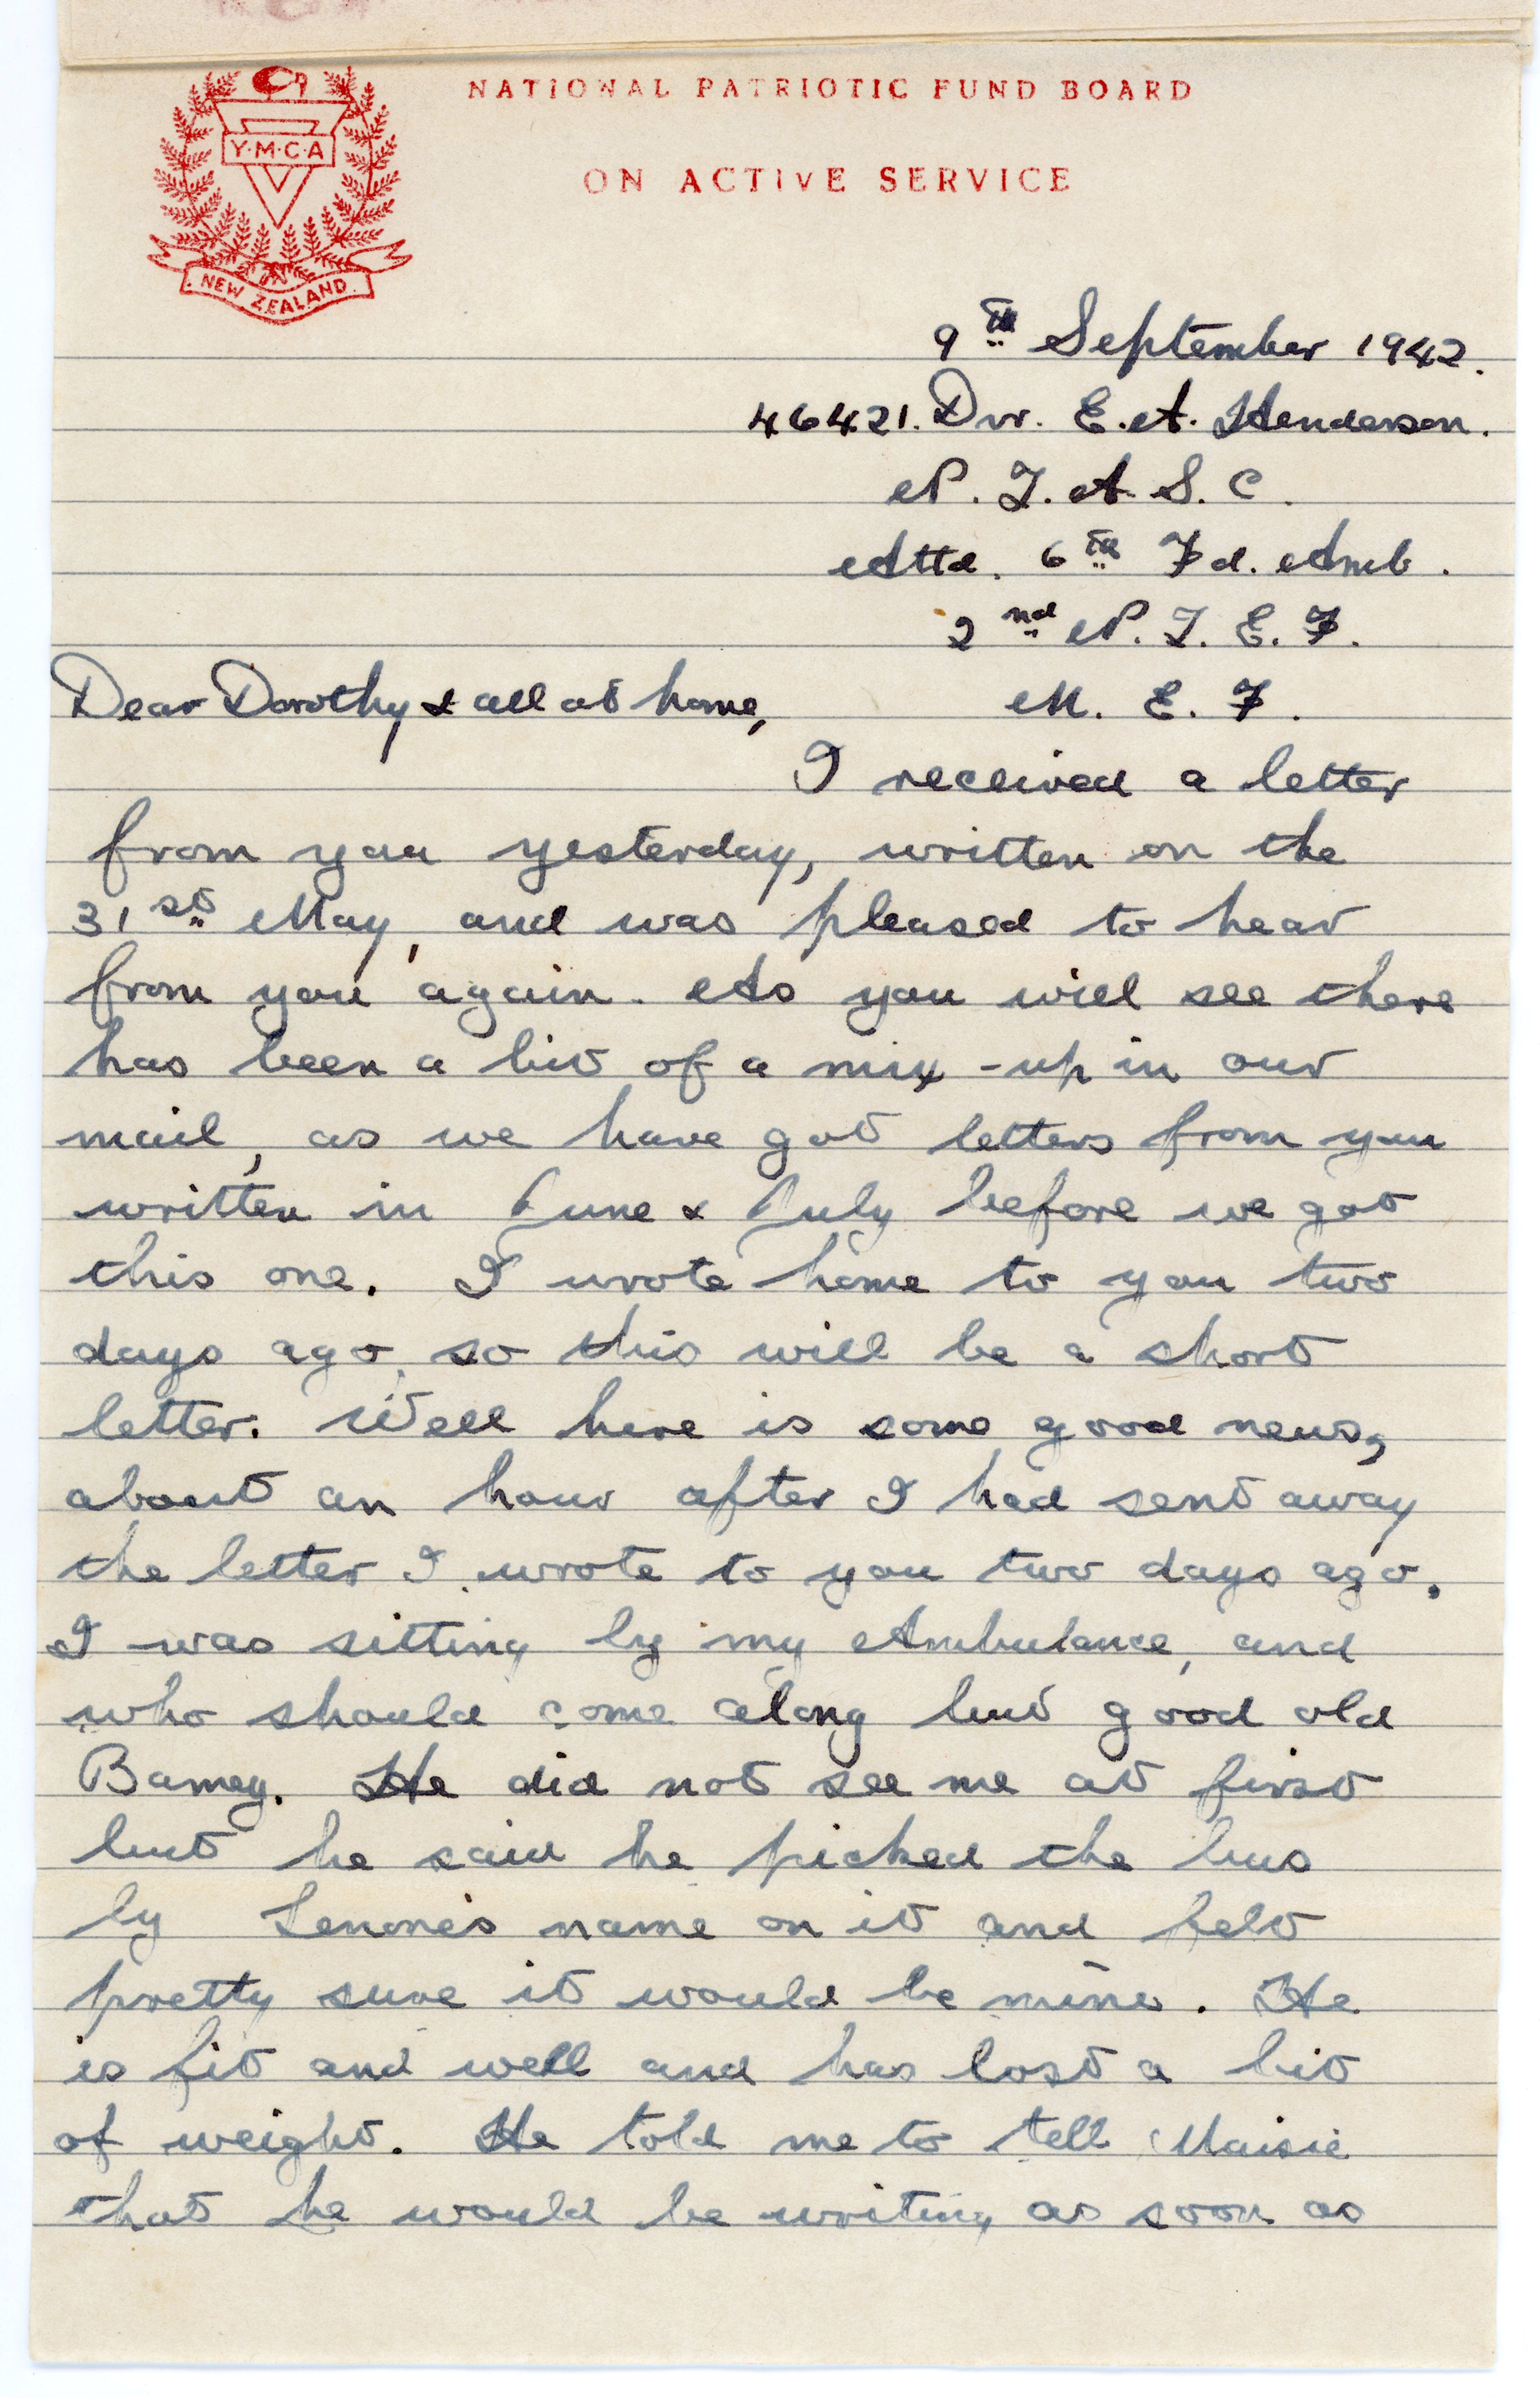 NATIONAL PATRIOTIC FUND BOARD
Y·M·C·A
ON ACTIVE SERVICE
NEW ZEALAND
9th September 1942.
46421. Dvr. E. A. Henderson.
N. Z. A. S. C.
Attd. 6th Fd. Amb.
2nd N. Z. E. F.
Dear Dorothy & all at home, M. E. F.
I received a letter
from you yesterday, written on the
31st May, and was pleased to hear
from you again. As you will see there
has been a bit of a mix-up in our
mail, as we have got letters from you
written in June & July before we got
this one. I wrote home to you two
days ago, so this will be a short
letter. Well here is some good news,
about an hour after I had sent away
the letter I wrote to you two days ago.
I was sitting by my Ambulance, and
who should come along but good old
Barney. He did not see me at first
but he said he picked the bus
by Lenore's name on it and felt
pretty sure it would be mine. He
is fit and well and has lost a bit
of weight. He told me to tell Maisie
that he would be writing as soon as